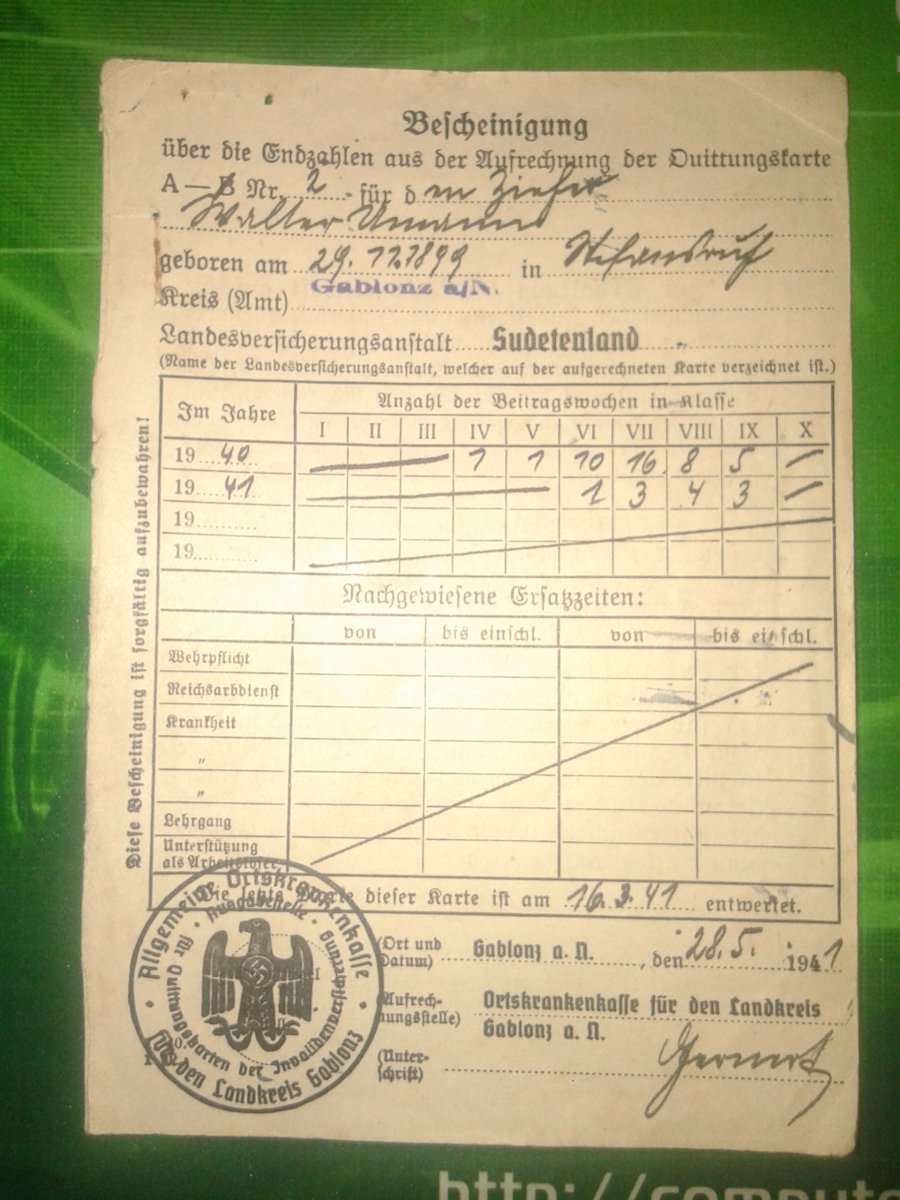 Bescheinigung
über die Endzahlen aus der Aufrechnung der Quittungskarte
A — B Nr. 2 für den
Walter Umann
geboren am 29.11.1899 in
Gablonz a/N.
Kreis (Amt)
Landesversicherungsanstalt Sudetenland
(Name der Landesversicherungsanstalt, welcher auf der aufgerechneten Karte verzeichnet ist.)
Im Jahre Anzahl der Beitragswochen in Klasse
I II III IV V VI VII VIII IX X
19 40 1 1 10 16 8 5 —
19 41 1 3 4 3 —
19
19
Nachgewiesene Ersatzzeiten:
von bis einschl. von bis einschl.
Wehrpflicht
Reichsarbdienst
Krankheit
"
"
Lehrgang
Unterstützung
als Arbeitsloser
Die letzte Marke dieser Karte ist am 16.3.41 entwertet.
(Ort und Datum) Gablonz a. N., den 28.5. 1941
(Aufrechnungsstelle) Ortskrankenkasse für den Landkreis
Gablonz a. N.
(Unterschrift)
Diese Bescheinigung ist sorgfältig aufzubewahren!
Allgemeine Ortskrankenkasse
für den Landkreis Gablonz
Ausgabestelle
für Quittungskarten der Invalidenversicherung
http://compute